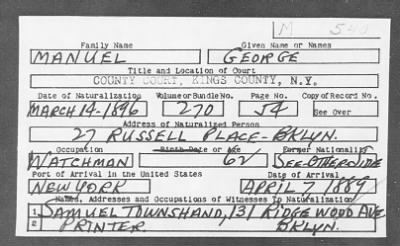 M 540
Family Name Given Name or Names
MANUEL GEORGE
Title and Location of Court
COUNTY COURT, KINGS COUNTY, N.Y.
Date of Naturalization Volume or Bundle No. Page No. Copy of Record No.
MARCH 14-1896 270 54 See Over
Address of Naturalized Person
27 RUSSELL PLACE-BKLYN.
Occupation Birth Date or Age Former Nationality
WATCHMAN 62 SEE OTHER SIDE
Port of Arrival in the United States Date of Arrival
NEW YORK APRIL 7 1889
Names, Addresses and Occupations of Witnesses To Naturalization
1 SAMUEL TOWNSHAND, 131 RIDGEWOOD AVE
2 PRINTER BKLYN.